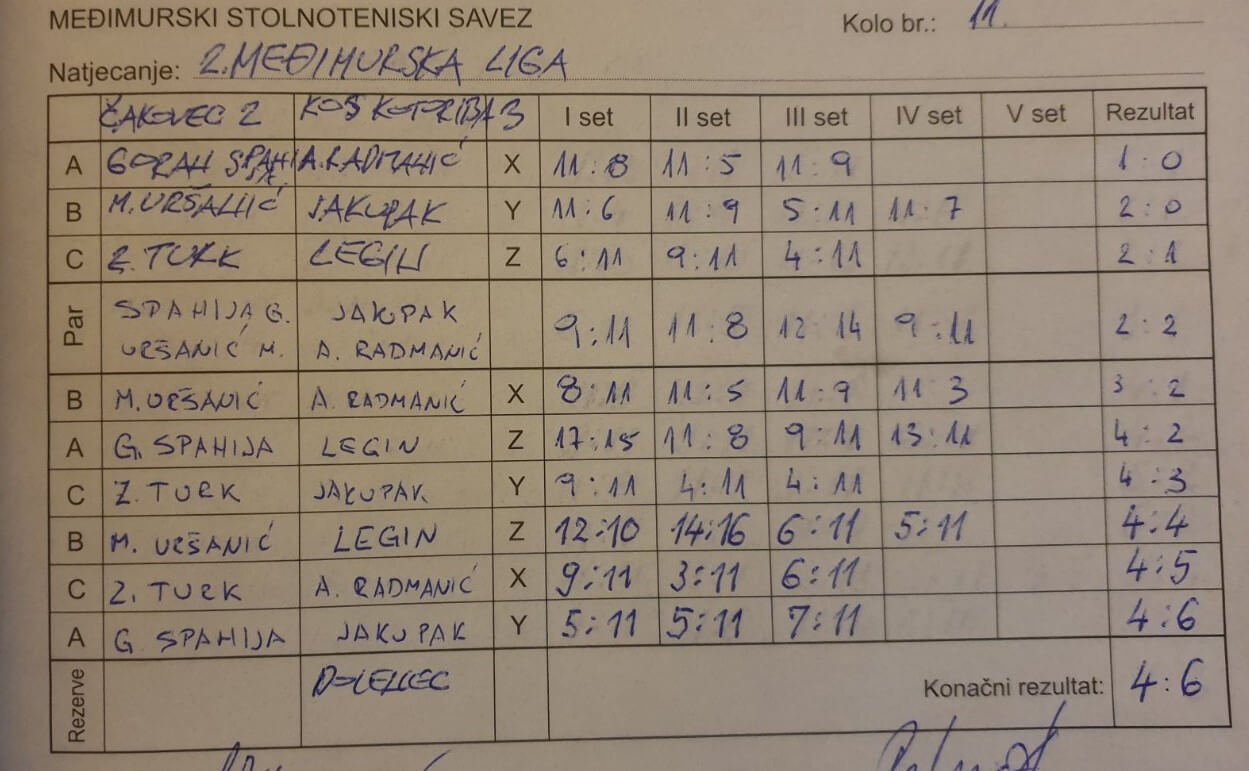 MEĐIMURSKI STOLNOTENISKI SAVEZ Kolo br.: 11.
Natjecanje: 2. MEĐIMURSKA LIGA
ČAKOVEC 2 KOŠ KOTORIBA 3 I set II set III set IV set V set Rezultat
A GORAN SPAHIJA A. RADMANIĆ X 11:8 11:5 11:9 1:0
B M. URŠANIĆ JAKUPAK Y 11:6 11:9 5:11 11:7 2:0
C Z. TURK LEGIN Z 6:11 9:11 4:11 2:1
Par SPAHIJA G. JAKUPAK 9:11 11:8 12:14 9:11 2:2
URŠANIĆ M. A. RADMANIĆ
B M. URŠANIĆ A. RADMANIĆ X 8:11 11:5 11:9 11:3 3:2
A G. SPAHIJA LEGIN Z 17:15 11:8 9:11 13:11 4:2
C Z. TURK JAKUPAK Y 9:11 4:11 4:11 4:3
B M. URŠANIĆ LEGIN Z 12:10 14:16 6:11 5:11 4:4
C Z. TURK A. RADMANIĆ X 9:11 3:11 6:11 4:5
A G. SPAHIJA JAKUPAK Y 5:11 5:11 7:11 4:6
Rezerve Konačni rezultat: 4:6